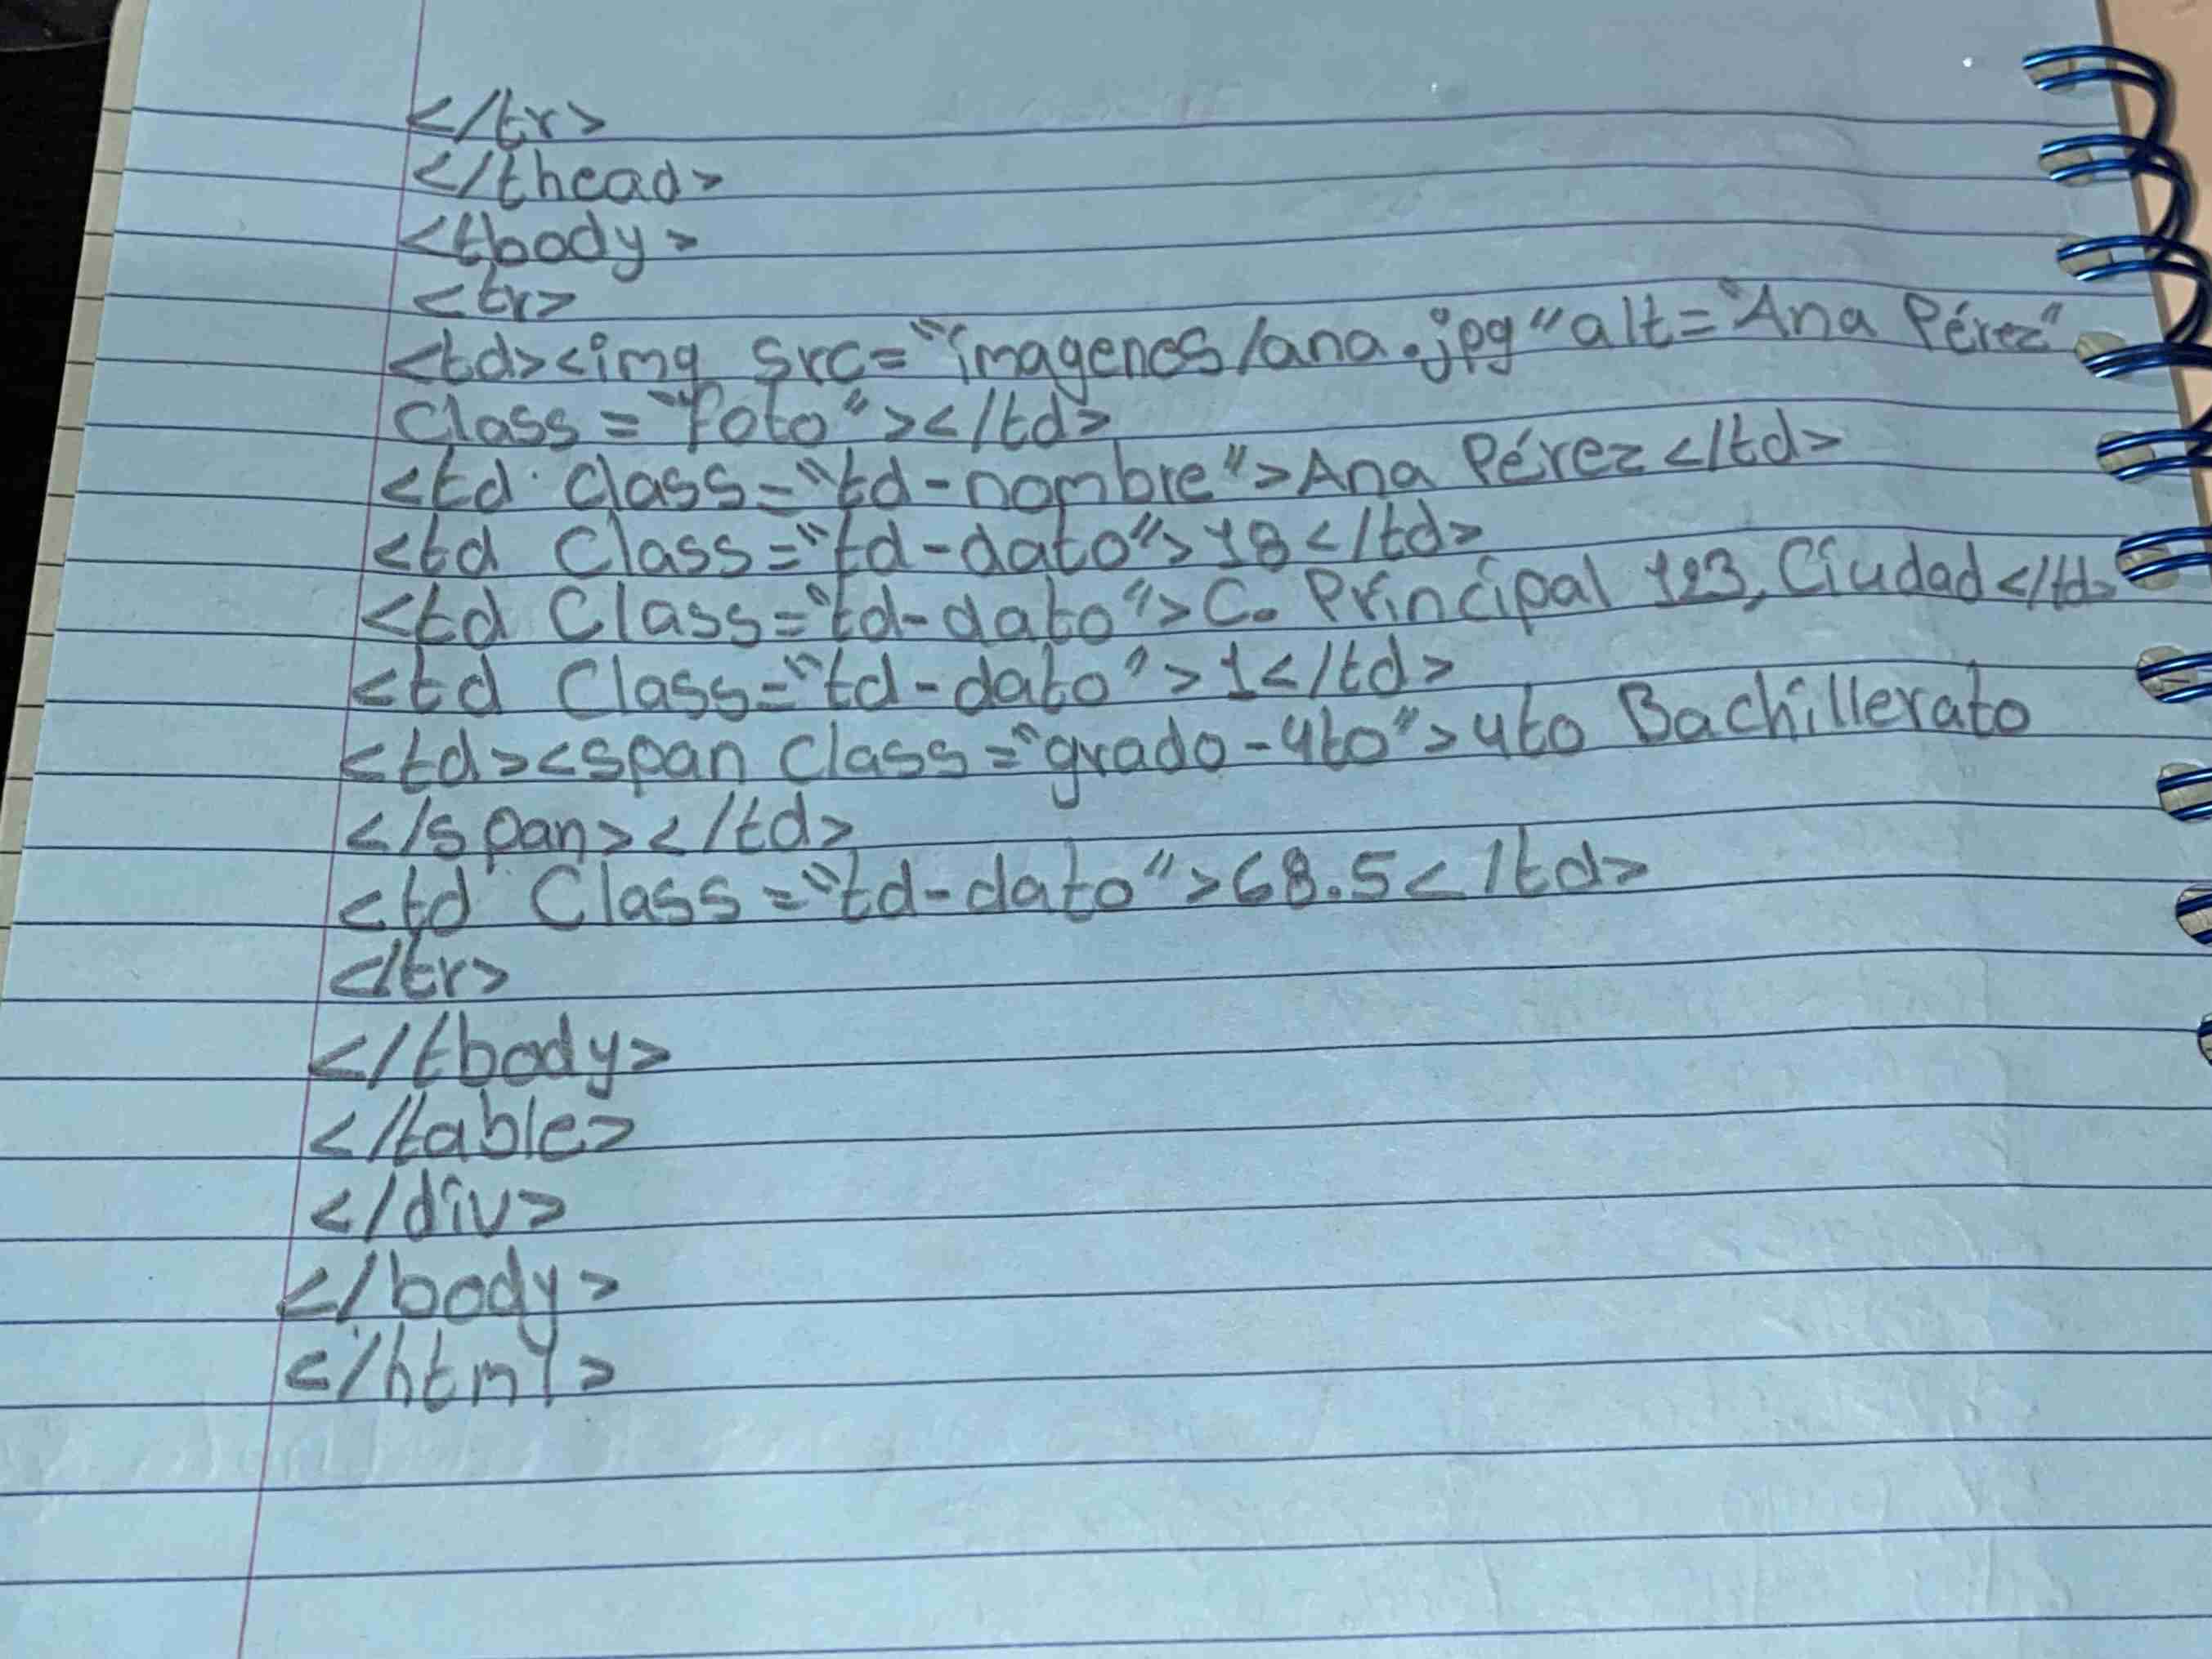 </tr>
</thead>
<tbody>
<tr>
<td><img src="imagenes/ana.jpg" alt="Ana Pérez"
Class="foto"></td>
<td class="td-nombre">Ana Pérez</td>
<td Class="td-dato">18</td>
<td Class="td-dato">C. Principal 123, Ciudad</td>
<td Class="td-dato">1</td>
<td><span class="grado-4to">4to Bachillerato
</span></td>
<td Class="td-dato">68.5</td>
</tr>
</tbody>
</table>
</div>
</body>
</html>